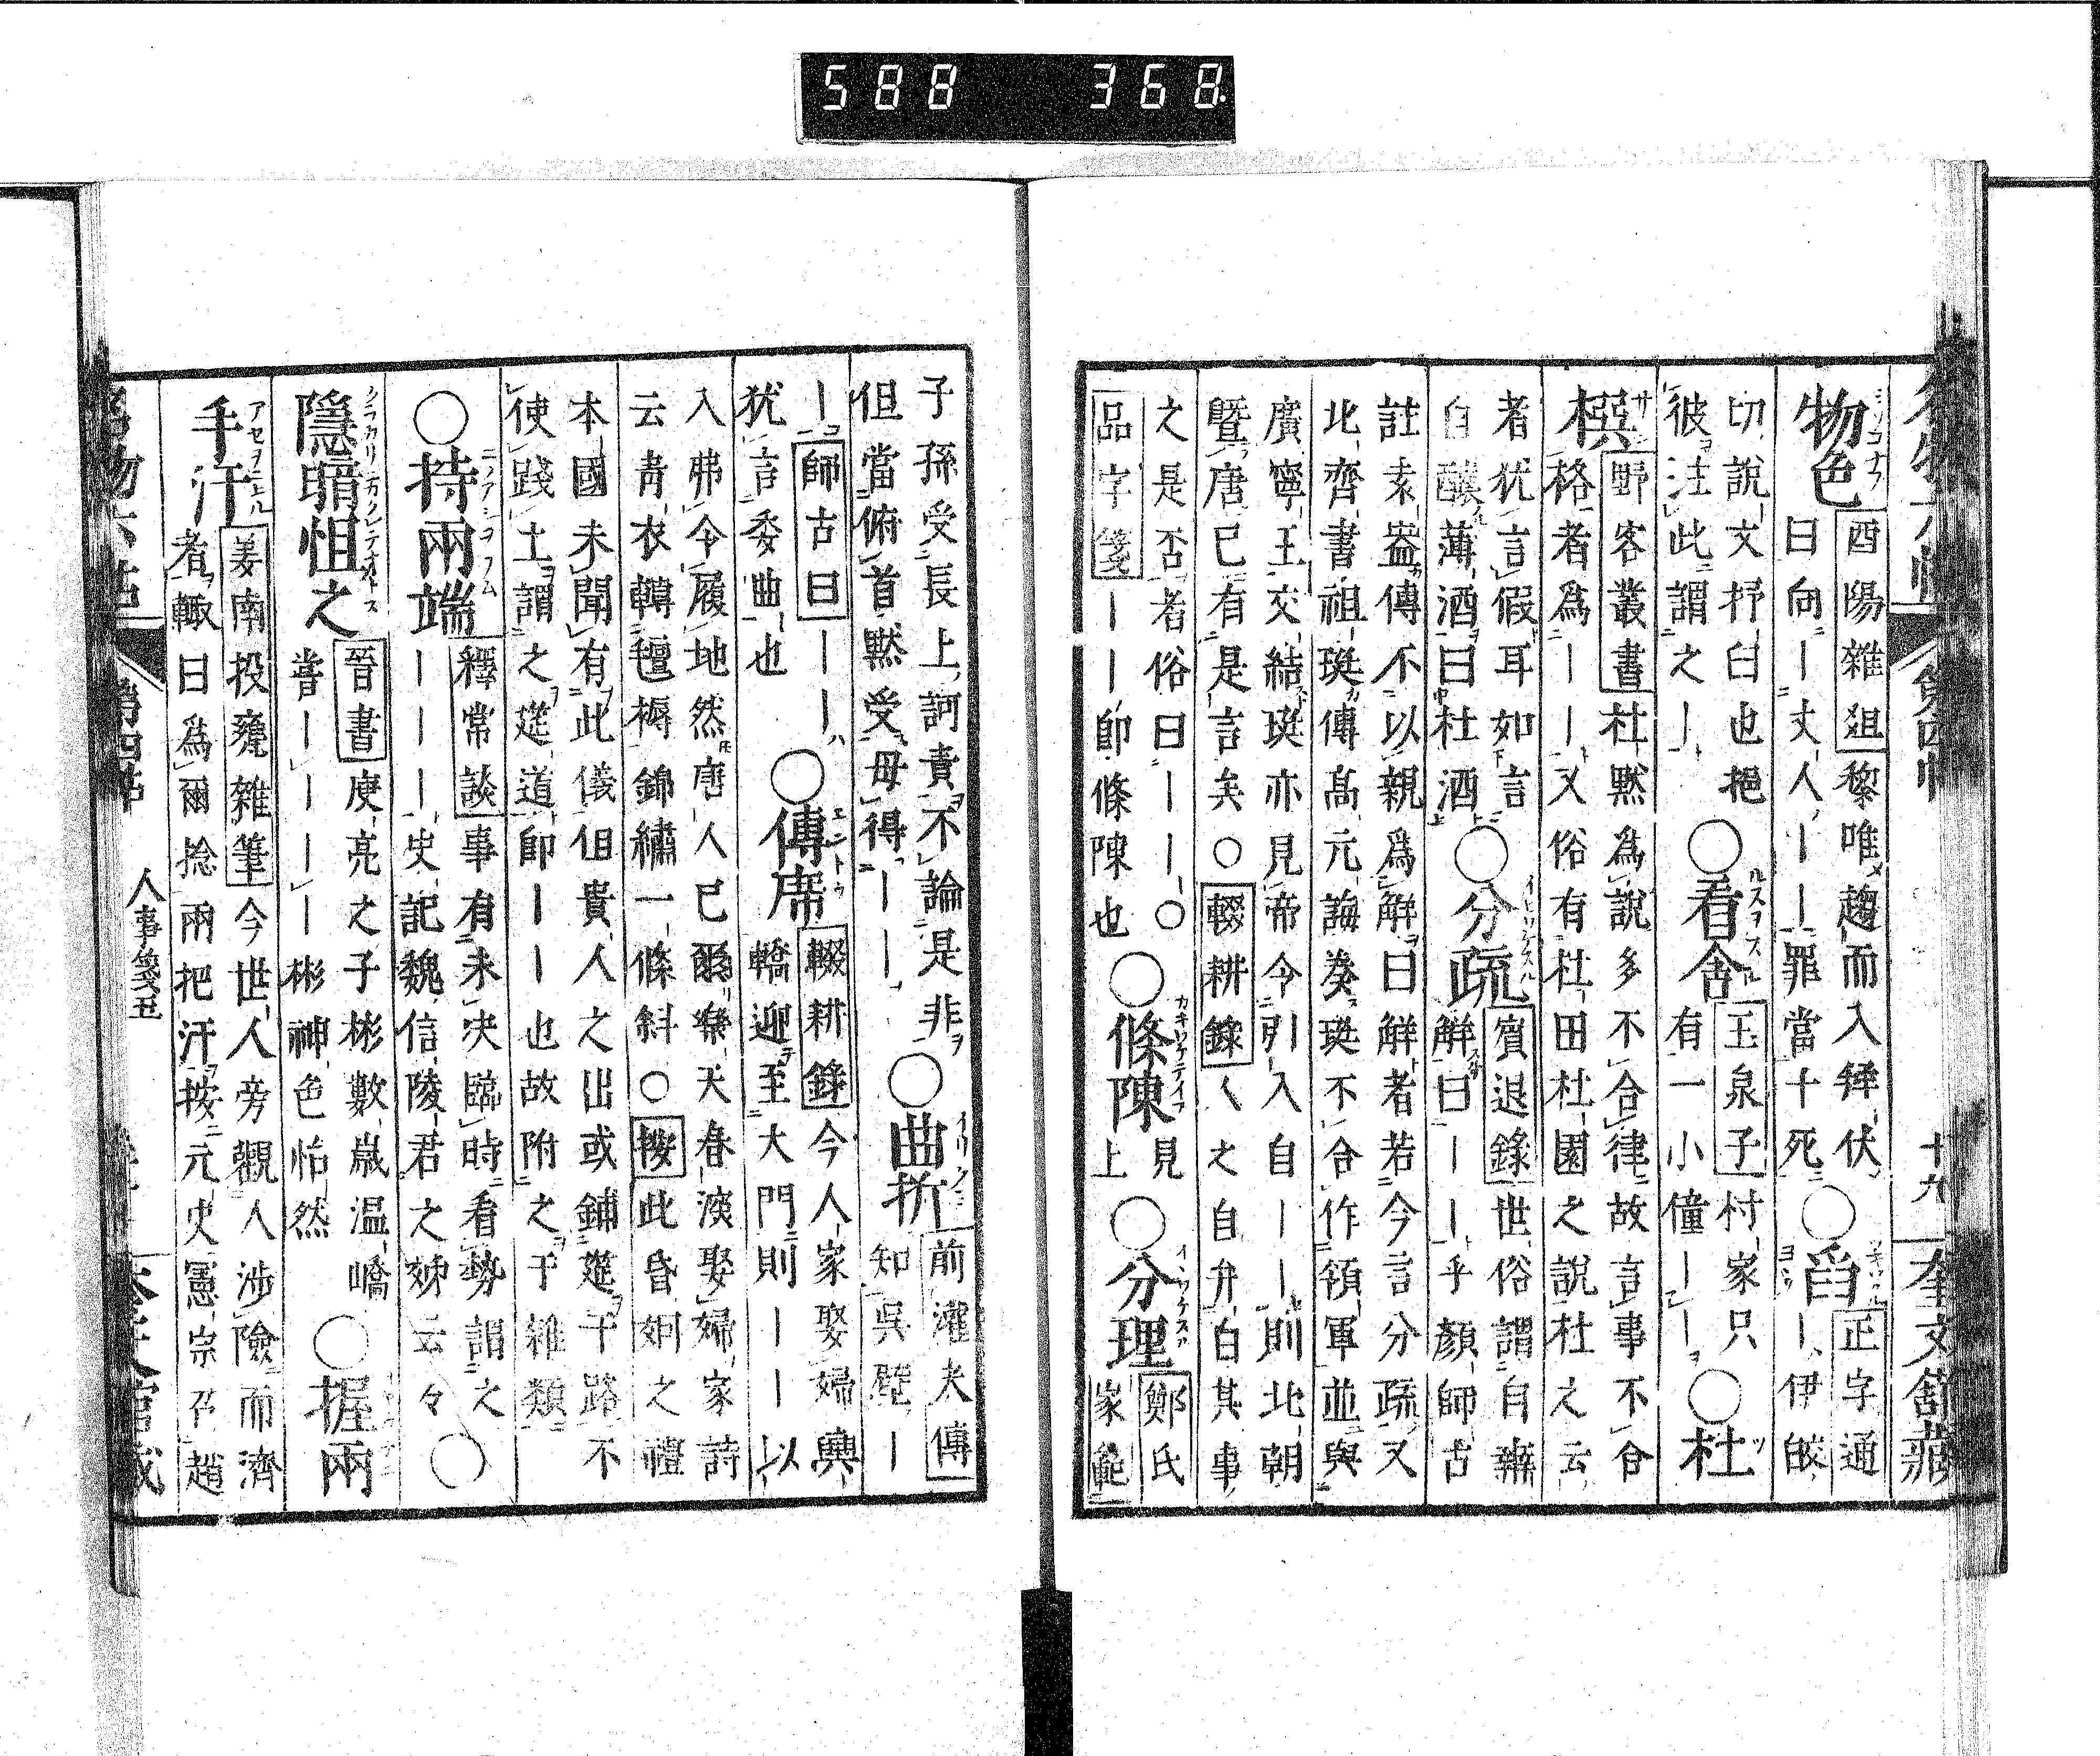 588 368
奎文舘藏
十九
物色
酉陽雜爼黎唯趨而入拜伏
曰向｜丈人｜｜罪當十死
○舀
正字通
｜伊皎
切說文抒臼也挹
彼注此謂之｜
○看舍
玉泉子村家只
有一小僮｜｜
○杜
撰
野客叢書杜默爲說多不合律故言事不合
格者爲｜｜又俗有杜田杜園之說杜之云
者犹言假耳如言
自釀薄酒曰杜酒
○分疏
賓退錄世俗謂自辨
解曰｜｜乎顏師古
註袁盎傳不以親爲解曰解者若今言分疏又
北齊書祖珽傳高元海奏珽不合作領軍並與
廣寧王交結珽亦見帝令引入自｜｜則北朝
曁唐已有是言矣○輟耕錄人之自弁白其事
之是否者俗曰｜｜○
品字箋｜｜卽條陳也
○條陳
見
上
○分理
鄭氏
家範
子孫受長上訶責不論是非
但當俯首默受毋得｜｜
○曲折
前灌夫傳
知吳壁｜
｜師古曰｜｜
犹言委曲也
○傳席
輟耕錄今人家娶婦輿
轎迎至大門則｜｜以
入弗令履地然唐人已爾樂天春深娶婦家詩
云靑衣轉氊褥錦繡一條斜○按此昏姻之禮
本國未聞有此儀但貴人之出或鋪筵于路不
使踐土謂之筵道卽｜｜也故附之于雜類
○持兩端
釋常談事有未决臨時看勢謂之
｜｜｜史記魏信陵君之姉云々
○
隱暗怚之
晉書庾亮之子彬數嵗温嶠
甞｜｜｜｜彬神色怡然
○握兩
手汗
姜南投甕雜筆今世人旁觀人涉險而濟
者輙曰爲爾捻兩把汗按元史憲宗召趙
人事箋五